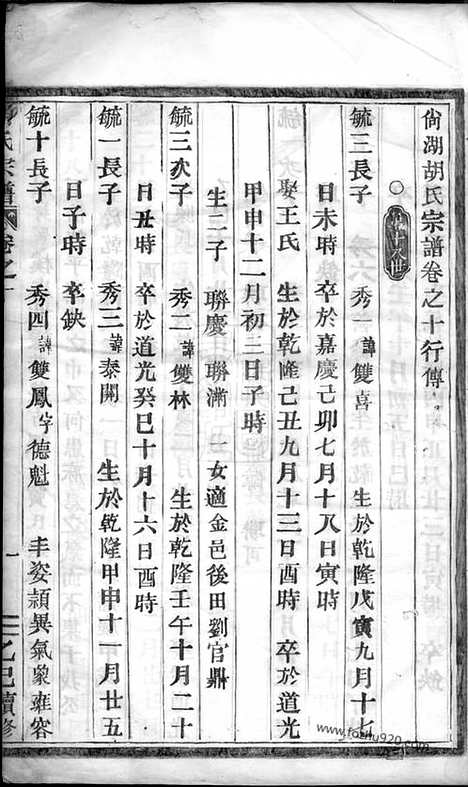 尙湖胡氏宗譜卷之十行傳
世
毓三長子 秀一諱雙喜 生於乾隆戊寅九月十七
日未時 卒於嘉慶己卯七月十八日寅時
娶王氏 生於乾隆己丑九月十三日酉時 卒於道光
甲申十二月初三日子時
生二子 聯慶 聯滿 一女適金邑後田劉官鼎
毓三次子 秀二諱雙林 生於乾隆壬午十月二十
日丑時 卒於道光癸巳十月十六日酉時
毓一長子 秀三諱泰開 生於乾隆甲申十一月廿五
日子時 卒缺
毓十長子 秀四諱雙鳳字德魁 丰姿頴異氣象雍容
氏宗譜 卷之十 一 乙巳續修
www.fozhu920.com